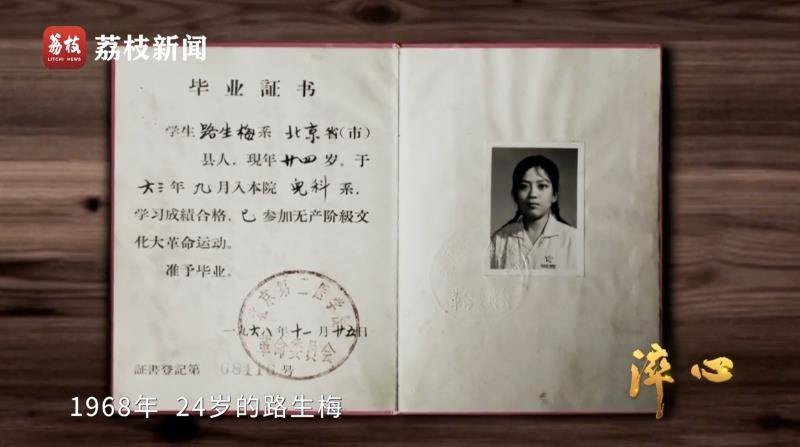 荔枝
LITCHI NEWS
荔枝新闻
毕业証书
学生 路生梅 系 北京 省(市)
县人，现年 廿四 岁。于
六三 年 九 月入本院 児科 系，
学习成績合格，已 参加无产阶級文
化大革命运动。
准予毕业。
北京第二医学院
革命委員会
一九六八年十一月廿五日
証書登记第 68116 号
革命委員会
淬心
1968年 24岁的路生梅